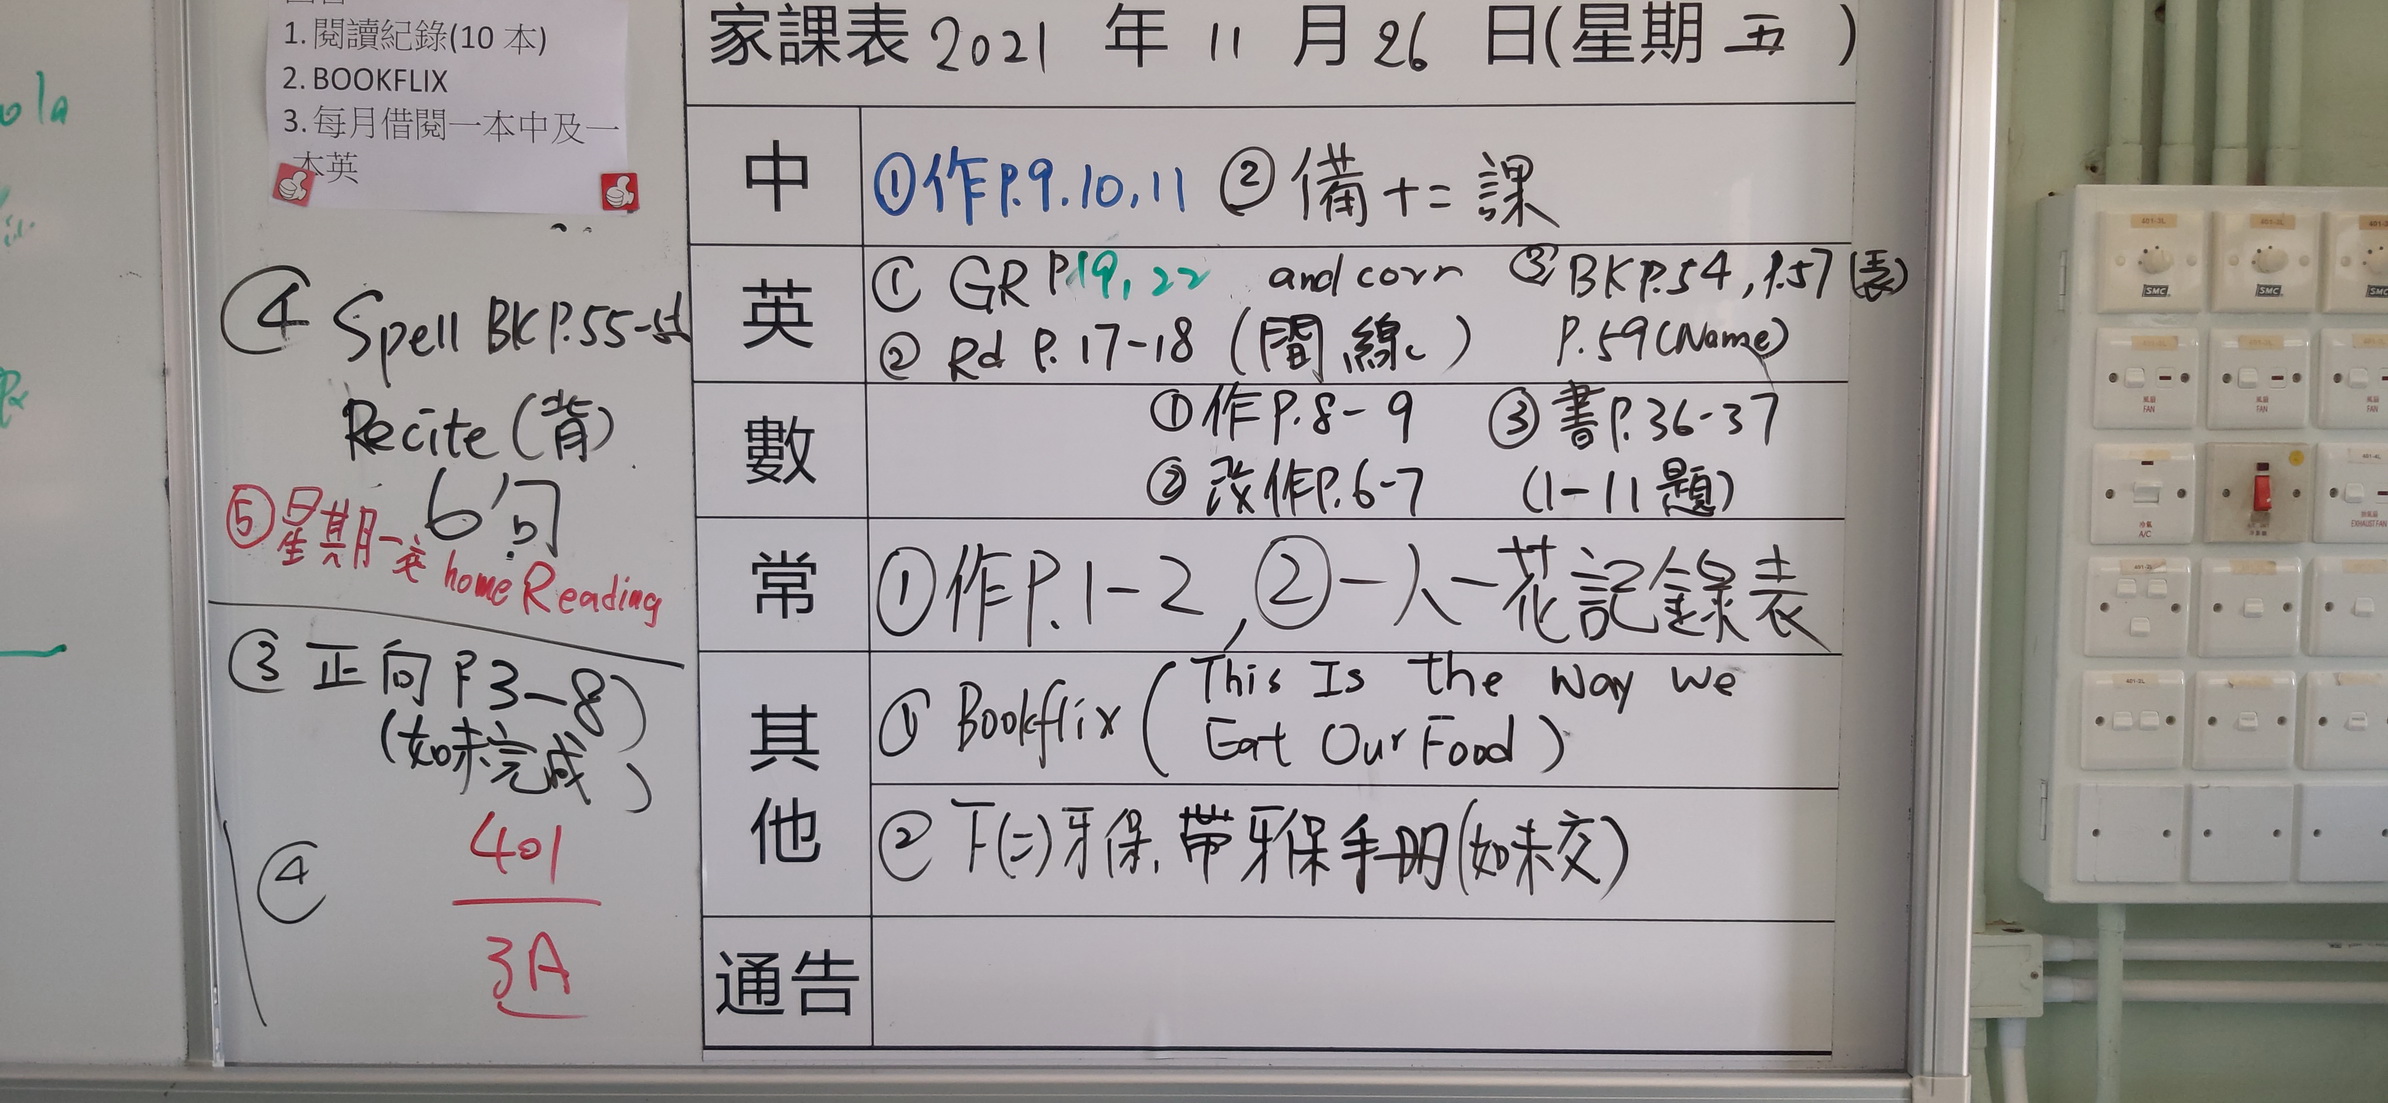 1. 閱讀紀錄(10 本)
2. BOOKFLIX
3. 每月借閱一本中及一
本英
④ Spell BK P.55-
Recite (背)
6句
⑤ 星期一交 home Reading
③ 正向 P3-8)
(如未完成)
④
401
3A
家課表 2021 年 11 月 26 日(星期 五 )
中
①作P.9.10,11 ②備十二課
英
① GR P.19,22 and corr ③ BK P.54, P.57 (表)
② Rd P.17-18 (間線) P.59 (Name)
數
①作P.8-9 ③書P.36-37
②改作P.6-7 (1-11題)
常
①作P.1-2, ②一人一花記錄表
其他
① Bookflix (This Is the Way We
Eat Our Food)
②下(二)牙保,帶牙保手冊(如未交)
通告
SMC
SMC
FAN
FAN
A/C
EXHAUST FAN